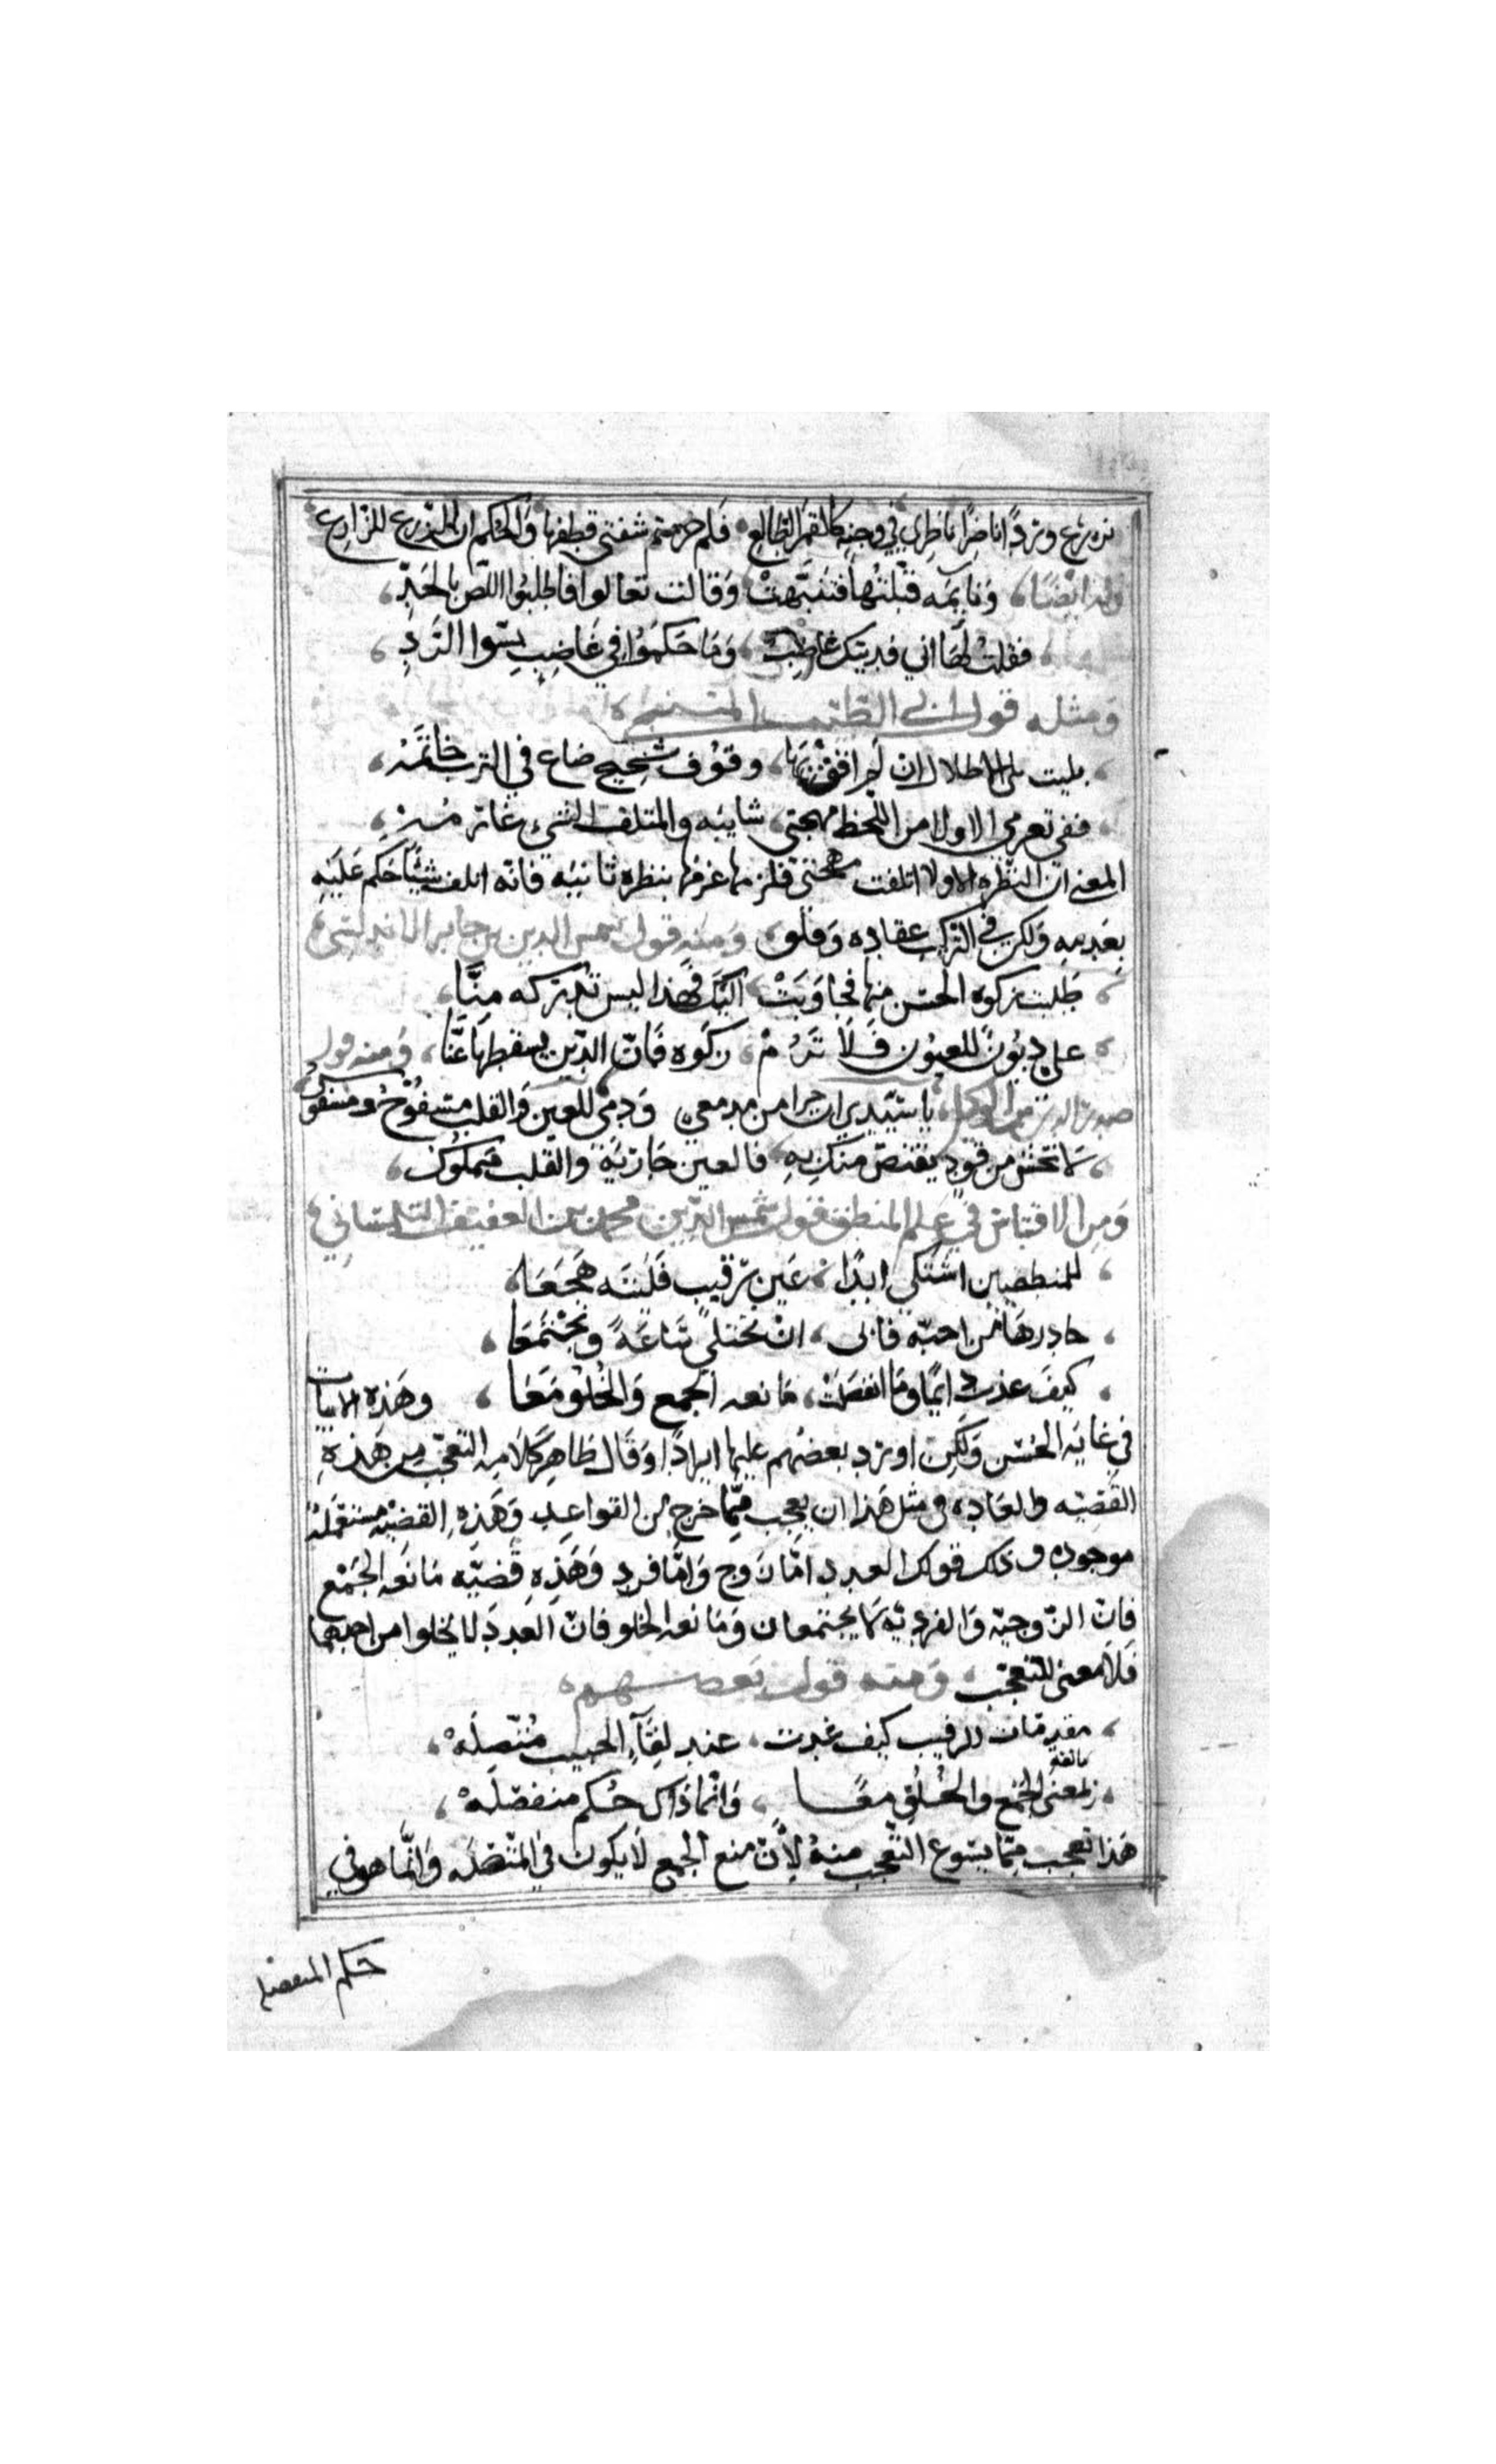 يزرع وردا ناضرا ناظري في وجنة كالقمر الطالع فلم حرمتم شفتي قطفها والحكم ان الزرع للزارع
وله ايضا ونايمه قبلتها فتنبهت وقالت تعالوا فاطلبوا اللص بالحد
فقلت لها اني فديتك غاصب وما حكموا في غاضب بسوا الرد
ومثله قول ابي الطيب المتنبي
بليت بلي الاطلال ان لم اقف بها وقوف شحيح ضاع في الترب خاتمه
قفي تغرمي الاولا من اللحظ مهجتي بثانيه والمتلف الشي غارمه
المعنى ان النظره الاولا اتلفت مهجتي فلزمها غرمها بنظره ثانيه فانه اتلف شيئا حكم عليه
بغرمه ولكن في التركيب عقاده وقلق ومنه قول شمس الدين بن جابر الاندلسي
طلبت زكوه الحسن منها فجاوبت اليك فهذا ليس تدركه منا
علي ديون للعيون فلا ترم زكوه فان الدين يسقطها عنا ومنه قول
صدر الدين بن الوكيل يا سيدي ان جرا من مدمعي ودمي للعين والقلب مسفوح ومسفوك
لا تخش من قود يقتص منك به فالعين جارية والقلب مملوك
ومن الاقتباس في علم المنطق قول شمس الدين محمد بن العفيف التلمساني
للمنطقيين اشتكي ابدا عين رقيب فليته هجعا
حاذرها من احبه فابى ان نختلي ساعة ونجتمعا
كيف غدت دايما وما انفصلت مانعه الجمع والخلو معا وهذه الابيات
في غايه الحسن ولكن اورد بعضهم عليها ايرادا وقال ظاهر كلامه التعجب من هذه
القضيه والعاده في مثل هذا ان يعجب مما خرج عن القواعد وهذه القضيه مستعمله
موجوده وذلك قولك العدد اما زوج واما فرد وهذه قضيه مانعه الجمع
فان الزوجيه والفرديه لا يجتمعان ومانعه الخلو فان العدد لا يخلوا من احدهما
فلا معنى للتعجب ومنه قول بعضهم
مقدمات الرقيب كيف غدت عند لقاء الحبيب متصله
مانعه
تمنع الجمع والخلو معا وانما ذاك حكم منفصله
هذا تعجب مما يسوغ التعجب منه لان منع الجمع لا يكون في المتصله وانما هو في
حكم المنفصله